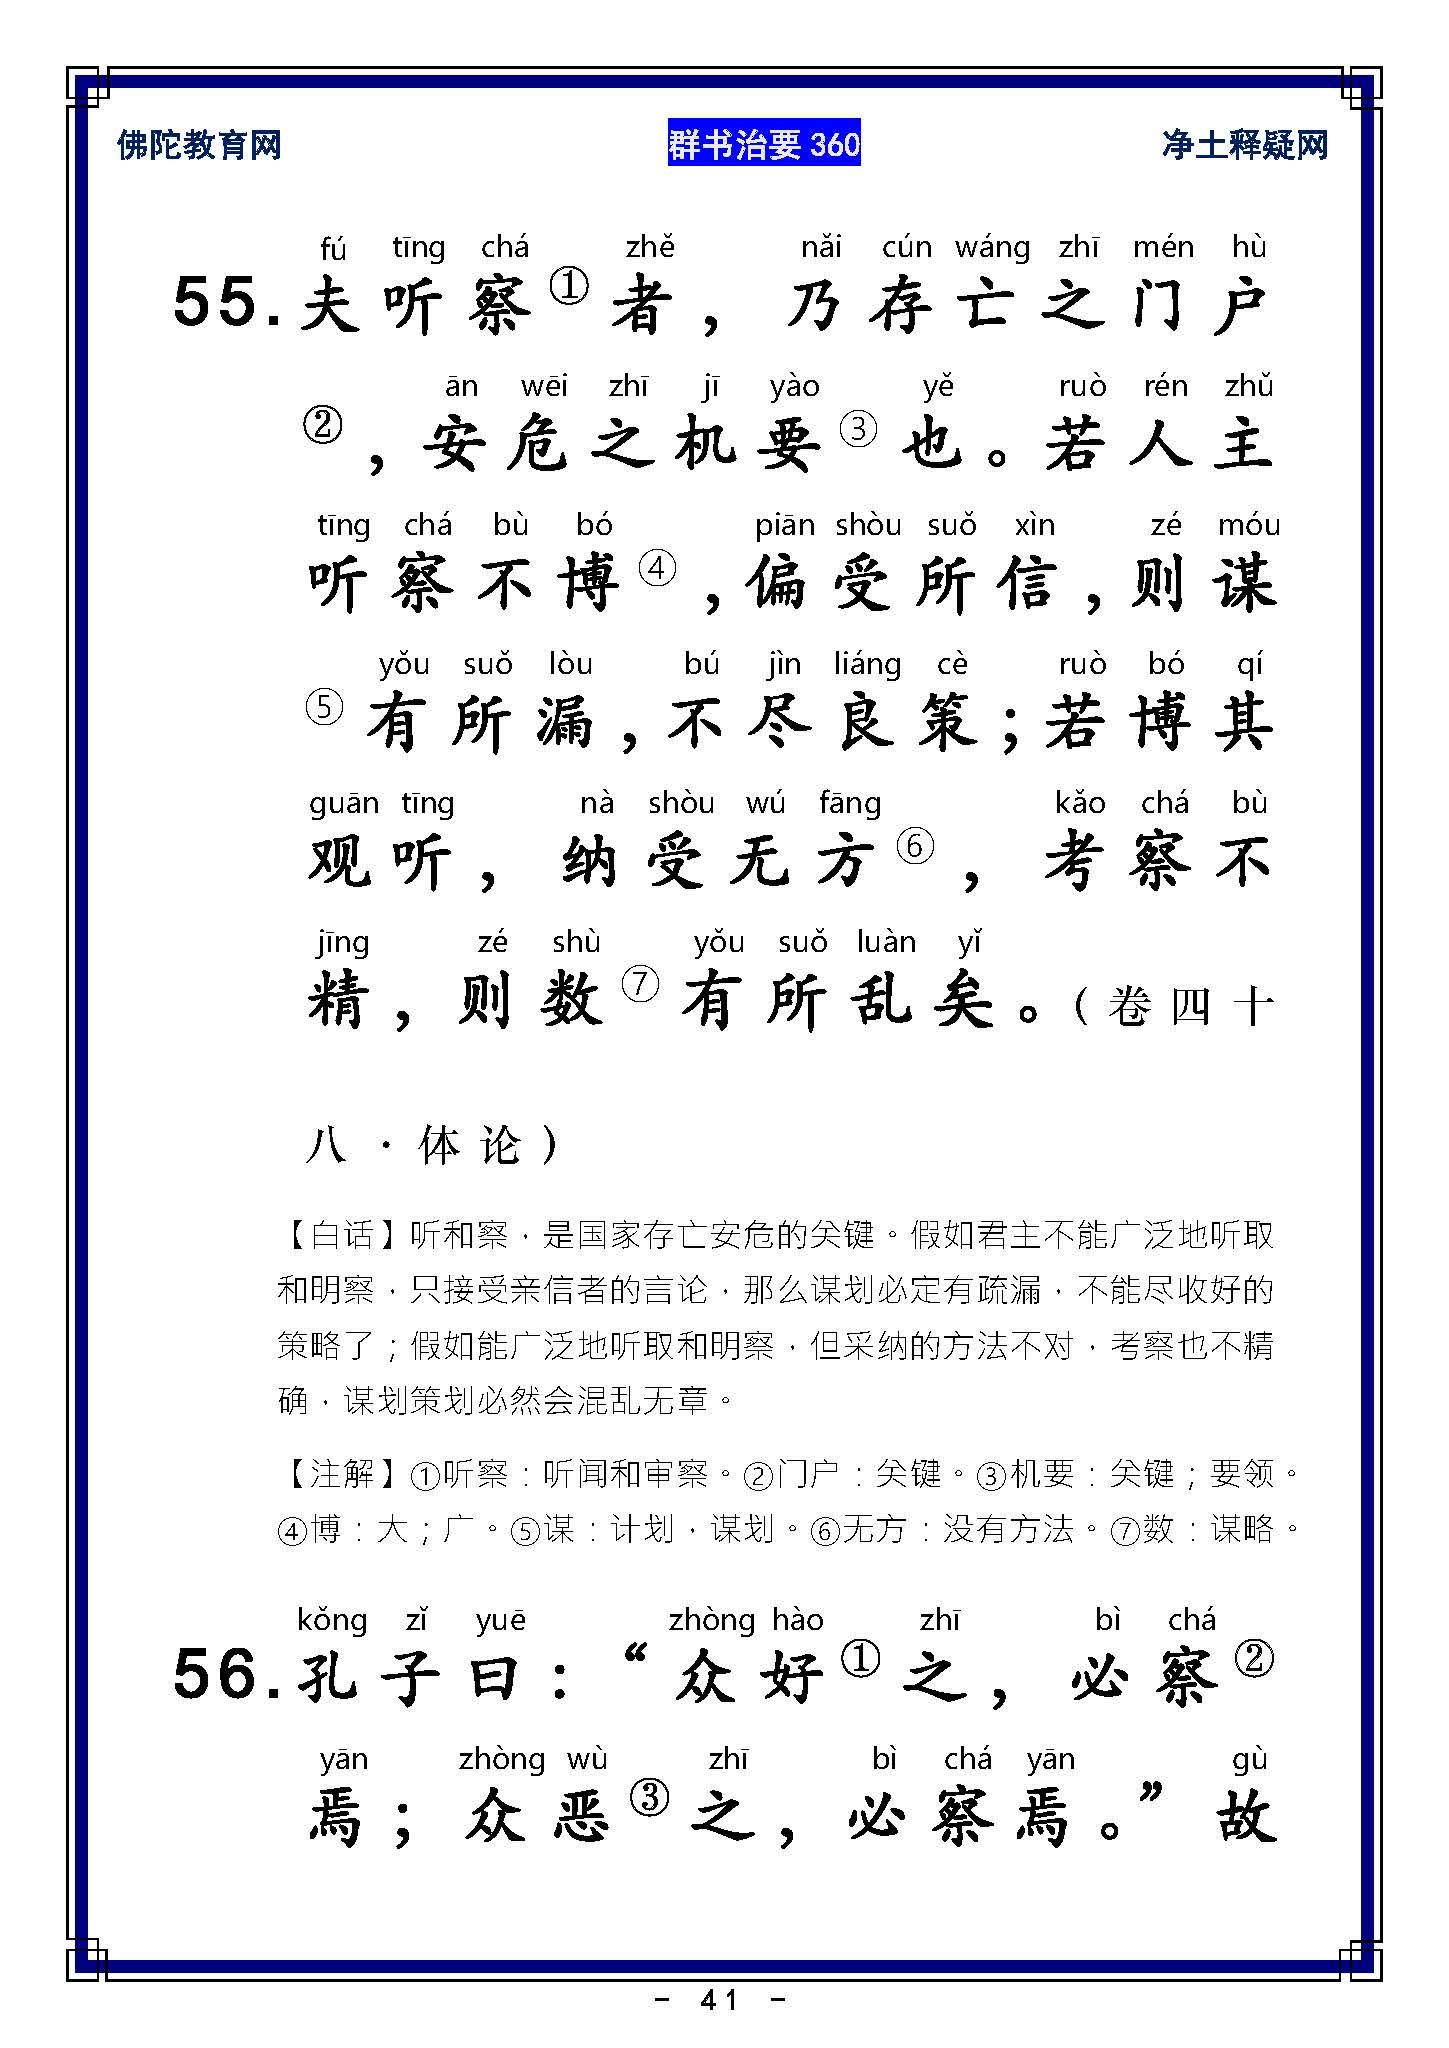 佛陀教育网 群书治要 360 净土释疑网
fú tīng chá zhě nǎi cún wáng zhī mén hù
55.夫听察①者，乃存亡之门户
ān wēi zhī jī yào yě ruò rén zhǔ
②，安危之机要③也。若人主
tīng chá bù bó piān shòu suǒ xìn zé móu
听察不博④，偏受所信，则谋
yǒu suǒ lòu bú jìn liáng cè ruò bó qí
⑤有所漏，不尽良策；若博其
guān tīng nà shòu wú fāng kǎo chá bù
观听，纳受无方⑥，考察不
jīng zé shù yǒu suǒ luàn yǐ
精，则数⑦有所乱矣。（卷四十
八·体论）
【白话】听和察，是国家存亡安危的关键。假如君主不能广泛地听取
和明察，只接受亲信者的言论，那么谋划必定有疏漏，不能尽收好的
策略了；假如能广泛地听取和明察，但采纳的方法不对，考察也不精
确，谋划策划必然会混乱无章。
【注解】①听察：听闻和审察。②门户：关键。③机要：关键；要领。
④博：大；广。⑤谋：计划，谋划。⑥无方：没有方法。⑦数：谋略。
kǒng zǐ yuē zhòng hào zhī bì chá
56.孔子曰：“众好①之，必察②
yān zhòng wù zhī bì chá yān gù
焉；众恶③之，必察焉。”故
- 41 -